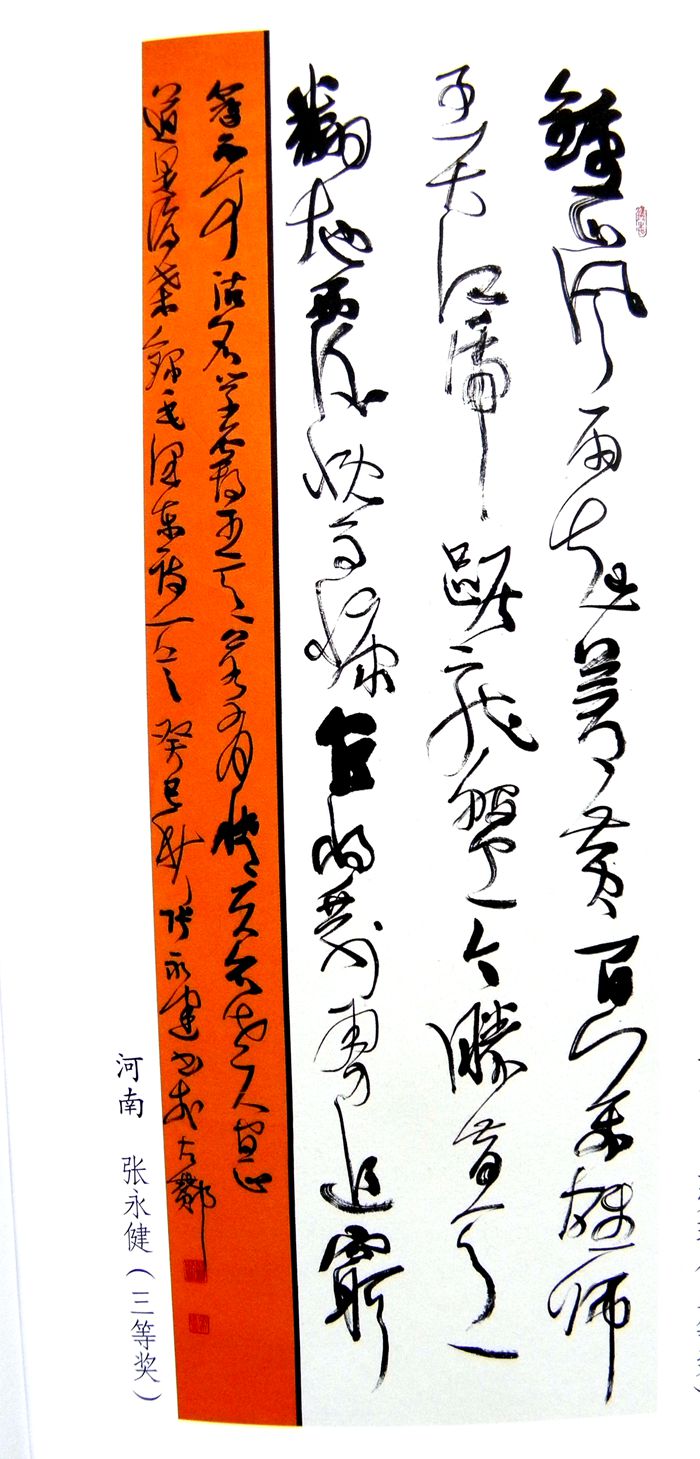 鐘山風雨起蒼黄百万雄师
过大江虎踞龍盤今勝昔天
翻地覆慨而慷宜将剩勇追窮
寇不可沽名学霸王天若有情天亦老人间正
道是滄桑錄毛泽东诗一首癸巳秋张永健书于古
河南 张永健(三等奖)